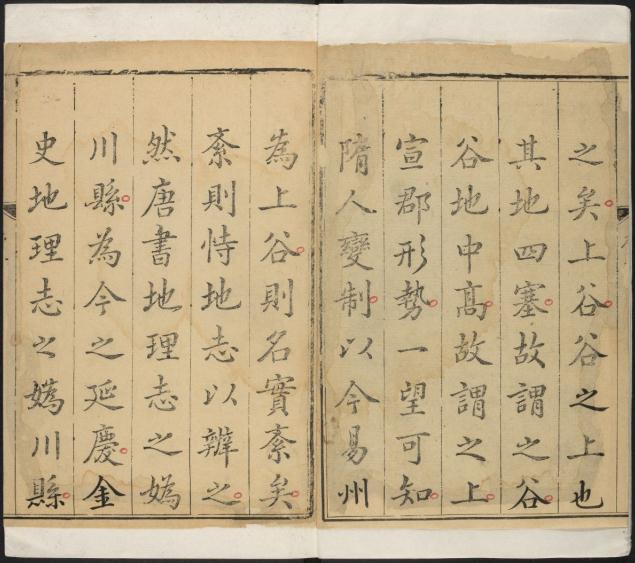 之矣上谷谷之上也
其地四塞故謂之谷
谷地中高故謂之上
宣郡形勢一望可知
隋人變制以今易州
為上谷則名實紊矣
紊則恃地志以辨之
然唐書地理志之媯
川縣為今之延慶金
史地理志之媯川縣